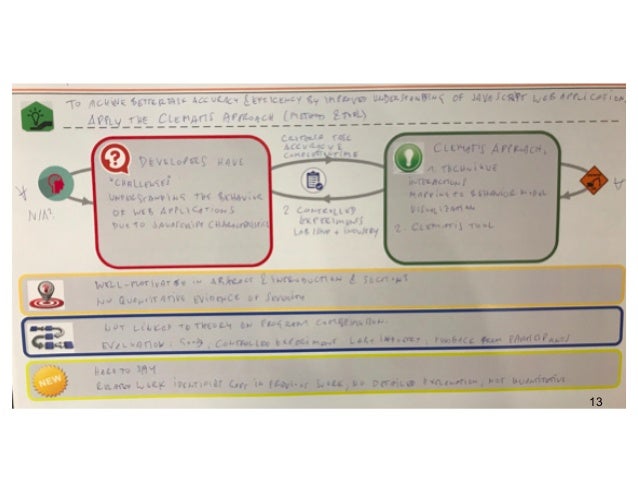 TO ACHIEVE BETTER TASK ACCURACY & EFFICIENCY BY IMPROVED UNDERSTANDING OF JAVASCRIPT WEB APPLICATION,
APPLY THE CLEMATIS APPROACH (METHOD & TOOL)
DEVELOPERS HAVE
"CHALLENGES"
UNDERSTANDING THE BEHAVIOR
OF WEB APPLICATIONS
DUE TO JAVASCRIPT CHARACTERISTICS
N/A?
CRITERIA TASK
ACCURACY &
COMPLETION TIME
2 CONTROLLED
EXPERIMENTS
LAB + INDUSTRY
CLEMATIS APPROACH,
1. TECHNIQUE
INTERACTIONS
MAPPING TO BEHAVIOR MODEL
VISUALIZATION
2. CLEMATIS TOOL
WELL-MOTIVATED IN ABSTRACT & INTRODUCTION & SECTIONS
NO QUANTITATIVE EVIDENCE OF SEVERITY
NOT LINKED TO THEORY ON PROGRAM COMPREHENSION.
EVALUATION: GOOD, CONTROLLED EXPERIMENT LAB & INDUSTRY, FEEDBACK FROM PARTICIPANTS
NEW
HARD TO SAY
RELATED WORK IDENTIFIES GAPS IN PREVIOUS WORK, NO DETAILED EXPLANATION, NOT QUANTITATIVE
13